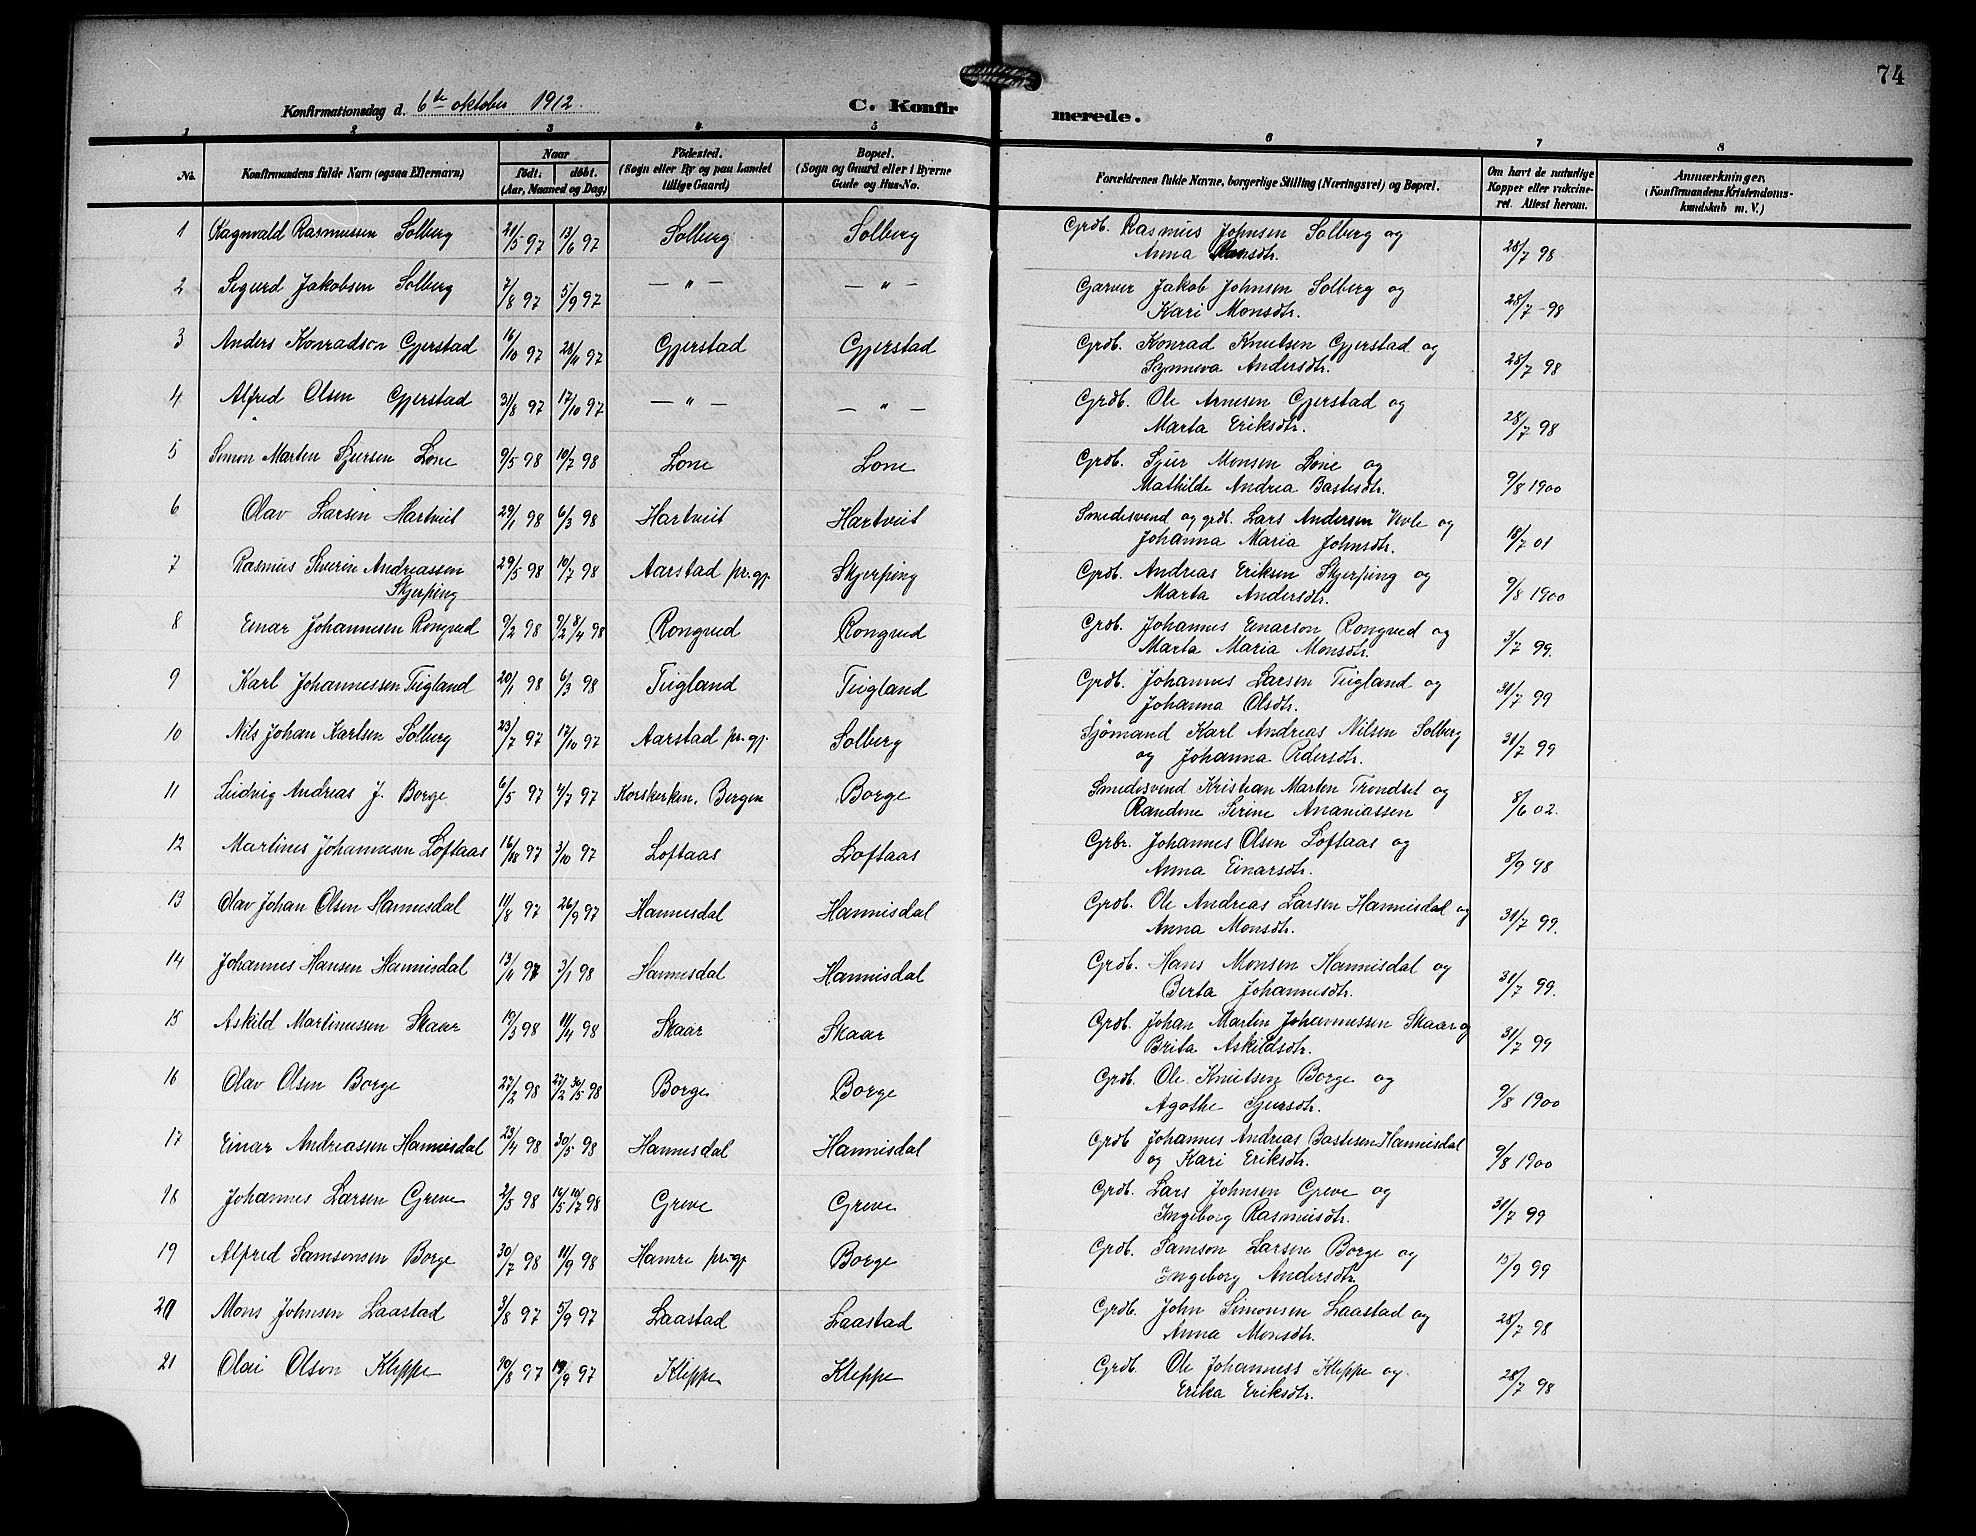 74
Konfirmationsdag d. 6te oktober 1912.
C. Konfirmerede.
1 2 3 4 5 6 7 8
No. Konfirmandens fulde Navn (ogsaa Efternavn) Naar født. døbt. (Aar, Maaned og Dag) Fødested. (Sogn eller By og paa Landet tillige Gaard) Bopæl. (Sogn og Gaard eller i Byerne Gade og Hus-No. Forældrenes fulde Navne, borgerlige Stilling (Næringsvei) og Bopæl. Om havt de naturlige Kopper eller vakcineret. Attest herom. Anmærkninger. (Konfirmandens Kristendomskundskab m. V.)
1 Ragnvald Rasmussen Solberg 21/5 97 13/6 97 Solberg Solberg Grdb. Rasmus Johnsen Solberg og 28/7 98
Anna Monsdtr.
2 Sigurd Jakobsen Solberg 7/8 97 5/9 97 — " — — " — Garver Jakob Johnsen Solberg og 28/7 - 98
Kari Monsdtr.
3 Anders Konradson Gjerstad 16/10 97 28/11 97 Gjerstad Gjerstad Grdb. Konrad Knutsen Gjerstad og 28/7 98
Synneva Andersdtr.
4 Alfred Olsen Gjerstad 31/8 97 17/10 97 — " — — " — Grdb. Ole Arnesen Gjerstad og 28/7 98
Marta Eriksdtr.
5 Simon Marten Sjursen Lone 9/5 98 10/7 98 Lone Lone Grdb. Sjur Monsen Lone og 9/8 1900
Mathilde Andrea Bastesdtr.
6 Olav Larsen Hartveit 29/1 98 6/3 98 Hartveit Hartveit Smedesvend og grdb. Lars Andersen og 18/7 01
Johanna Maria Johnsdtr.
7 Rasmus Severin Andreassen 29/5 98 10/7 98 Aarstad pr.gj. Skjerping Grdb. Andreas Eriksen Skjerping og 9/8 1900
Skjerping Marta Andersdtr.
8 Einar Johannesen Rongved 9/2 98 9/2 8/4 98 Rongved Rongved Grdb. Johannes Einarson Rongved og 3/7 99.
Marta Maria Monsdtr.
9 Karl Johannessen Tugland 20/1 98 6/3 98 Tugland Tugland Grdb. Johannes Larsen Tugland og 31/7 99
Johanna Olsdtr.
10 Nils Johan Karlsen Solberg 23/7 97 17/10 97 Aarstad pr.gj. Solberg Sjömand Karl Andreas Nilsen Solberg 31/7 99
og Johanna Pedersdtr.
11 Ludvig Andreas J. Borge 6/5 97 4/7 97 Korskerken, Bergen Borge Smedesvend Kristian Marten Trondset og 8/6 02.
Randine Serine Ananiassen
12 Martines Johannesen Loftaas 16/8 97 3/10 97 Loftaas Loftaas Grbr. Johannes Olsen Loftaas og 8/9 98
Anna Einarsdtr.
13 Olav Johan Olsen Hannisdal 11/8 97 26/9 97 Hannisdal Hannisdal Grdb. Ole Andreas Larsen Hannisdal og 31/7 99.
Anna Monsdtr.
14 Johannes Hansen Hannisdal 13/11 97 3/1 98 Hannisdal Hannisdal Grdb. Hans Monsen Hannisdal og 31/7 99.
Berta Johannesdtr.
15 Askild Martinussen Skaar 19/3 98 11/4 98 Skaar Skaar Grdb. Johan Martin Johannessen Skaar og 31/7 99
Brita Askildsdtr.
16 Olav Olsen Borge 27/2 98 27/2 30/5 98 Borge Borge Grdb. Ole Knutsen Borge og 9/8 1900
Agothe Sjursdtr.
17 Einar Andreassen Hannisdal 23/4 98 30/5 98 Hannisdal Hannisdal Grdb Johannes Andreas Bastesen Hannisdal 9/8 1900
og Kari Eriksdtr.
18 Johannes Larsen Greve 2/5 98 14/5 10/7 98 Greve Greve Grdb. Lars Johnsen Greve og 31/7 99
Ingeborg Rasmusdtr.
19 Alfred Samsonsen Borge 30/7 98 11/9 98 Hamre pr.gj. Borge Grdb. Samson Larsen Borge og 15/9 99
Ingeborg Andersdtr.
20 Mons Johnsen Laastad 3/8 97 5/9 97 Laastad Laastad Grdb. John Simonsen Laastad og 28/7 98
Anna Monsdtr.
21 Olai Olson Kleppe 10/8 97 19/9 97 Kleppe Kleppe Grdb. Ole Johanness Kleppe og 28/7 98
Erika Eriksdtr.